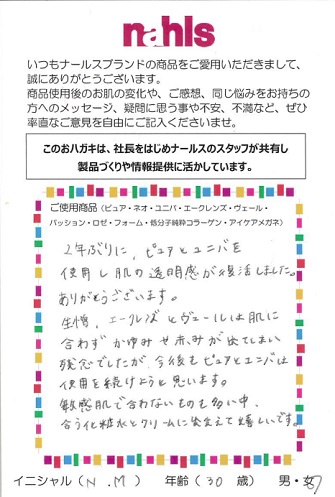 nahls
いつもナールスブランドの商品をご愛用いただきまして、
誠にありがとうございます。
商品使用後のお肌の変化や、ご感想、同じ悩みをお持ちの
方へのメッセージ、疑問に思う事や不安、不満など、ぜひ
率直なご意見を自由にご記入くださいませ。
このおハガキは、社長をはじめナールスのスタッフが共有し
製品づくりや情報提供に活かしています。
ご使用商品(ピュア・ネオ・ユニバ・エークレンズ・ヴェール・
パッション・ロゼ・フォーム・低分子純粋コラーゲン・アイケアメガネ)
2年ぶりに、ピュアとユニバを
使用し肌の透明感が復活しました。
ありがとうございます。
生憎、エークレンズとヴェールは肌に
合わずかゆみや赤みが出てしまい
残念でしたが、今後もピュアとユニバは
使用を続けようと思います。
敏感肌で合わないものも多い中、
合う化粧水とクリームに出会えて嬉しいです。
イニシャル(N.M) 年齢(30歳) 男・女